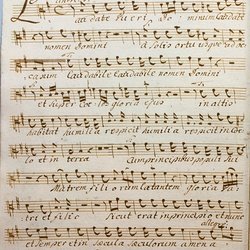 Laudate pueri Dominum laudate
nomen Domini a solis ortu usque ad oc
casum laudabile laudabile nomen Domini
et super Coelos gloria ejus in alto
habitat humilia respicit humilia respicit in Coe
lo et in terra cum principibus populi sui
Matrem filiorum laetantem gloria Pa
tri et filio sicut erat in principio et nunc
et semper et in saecula saeculorum amen a